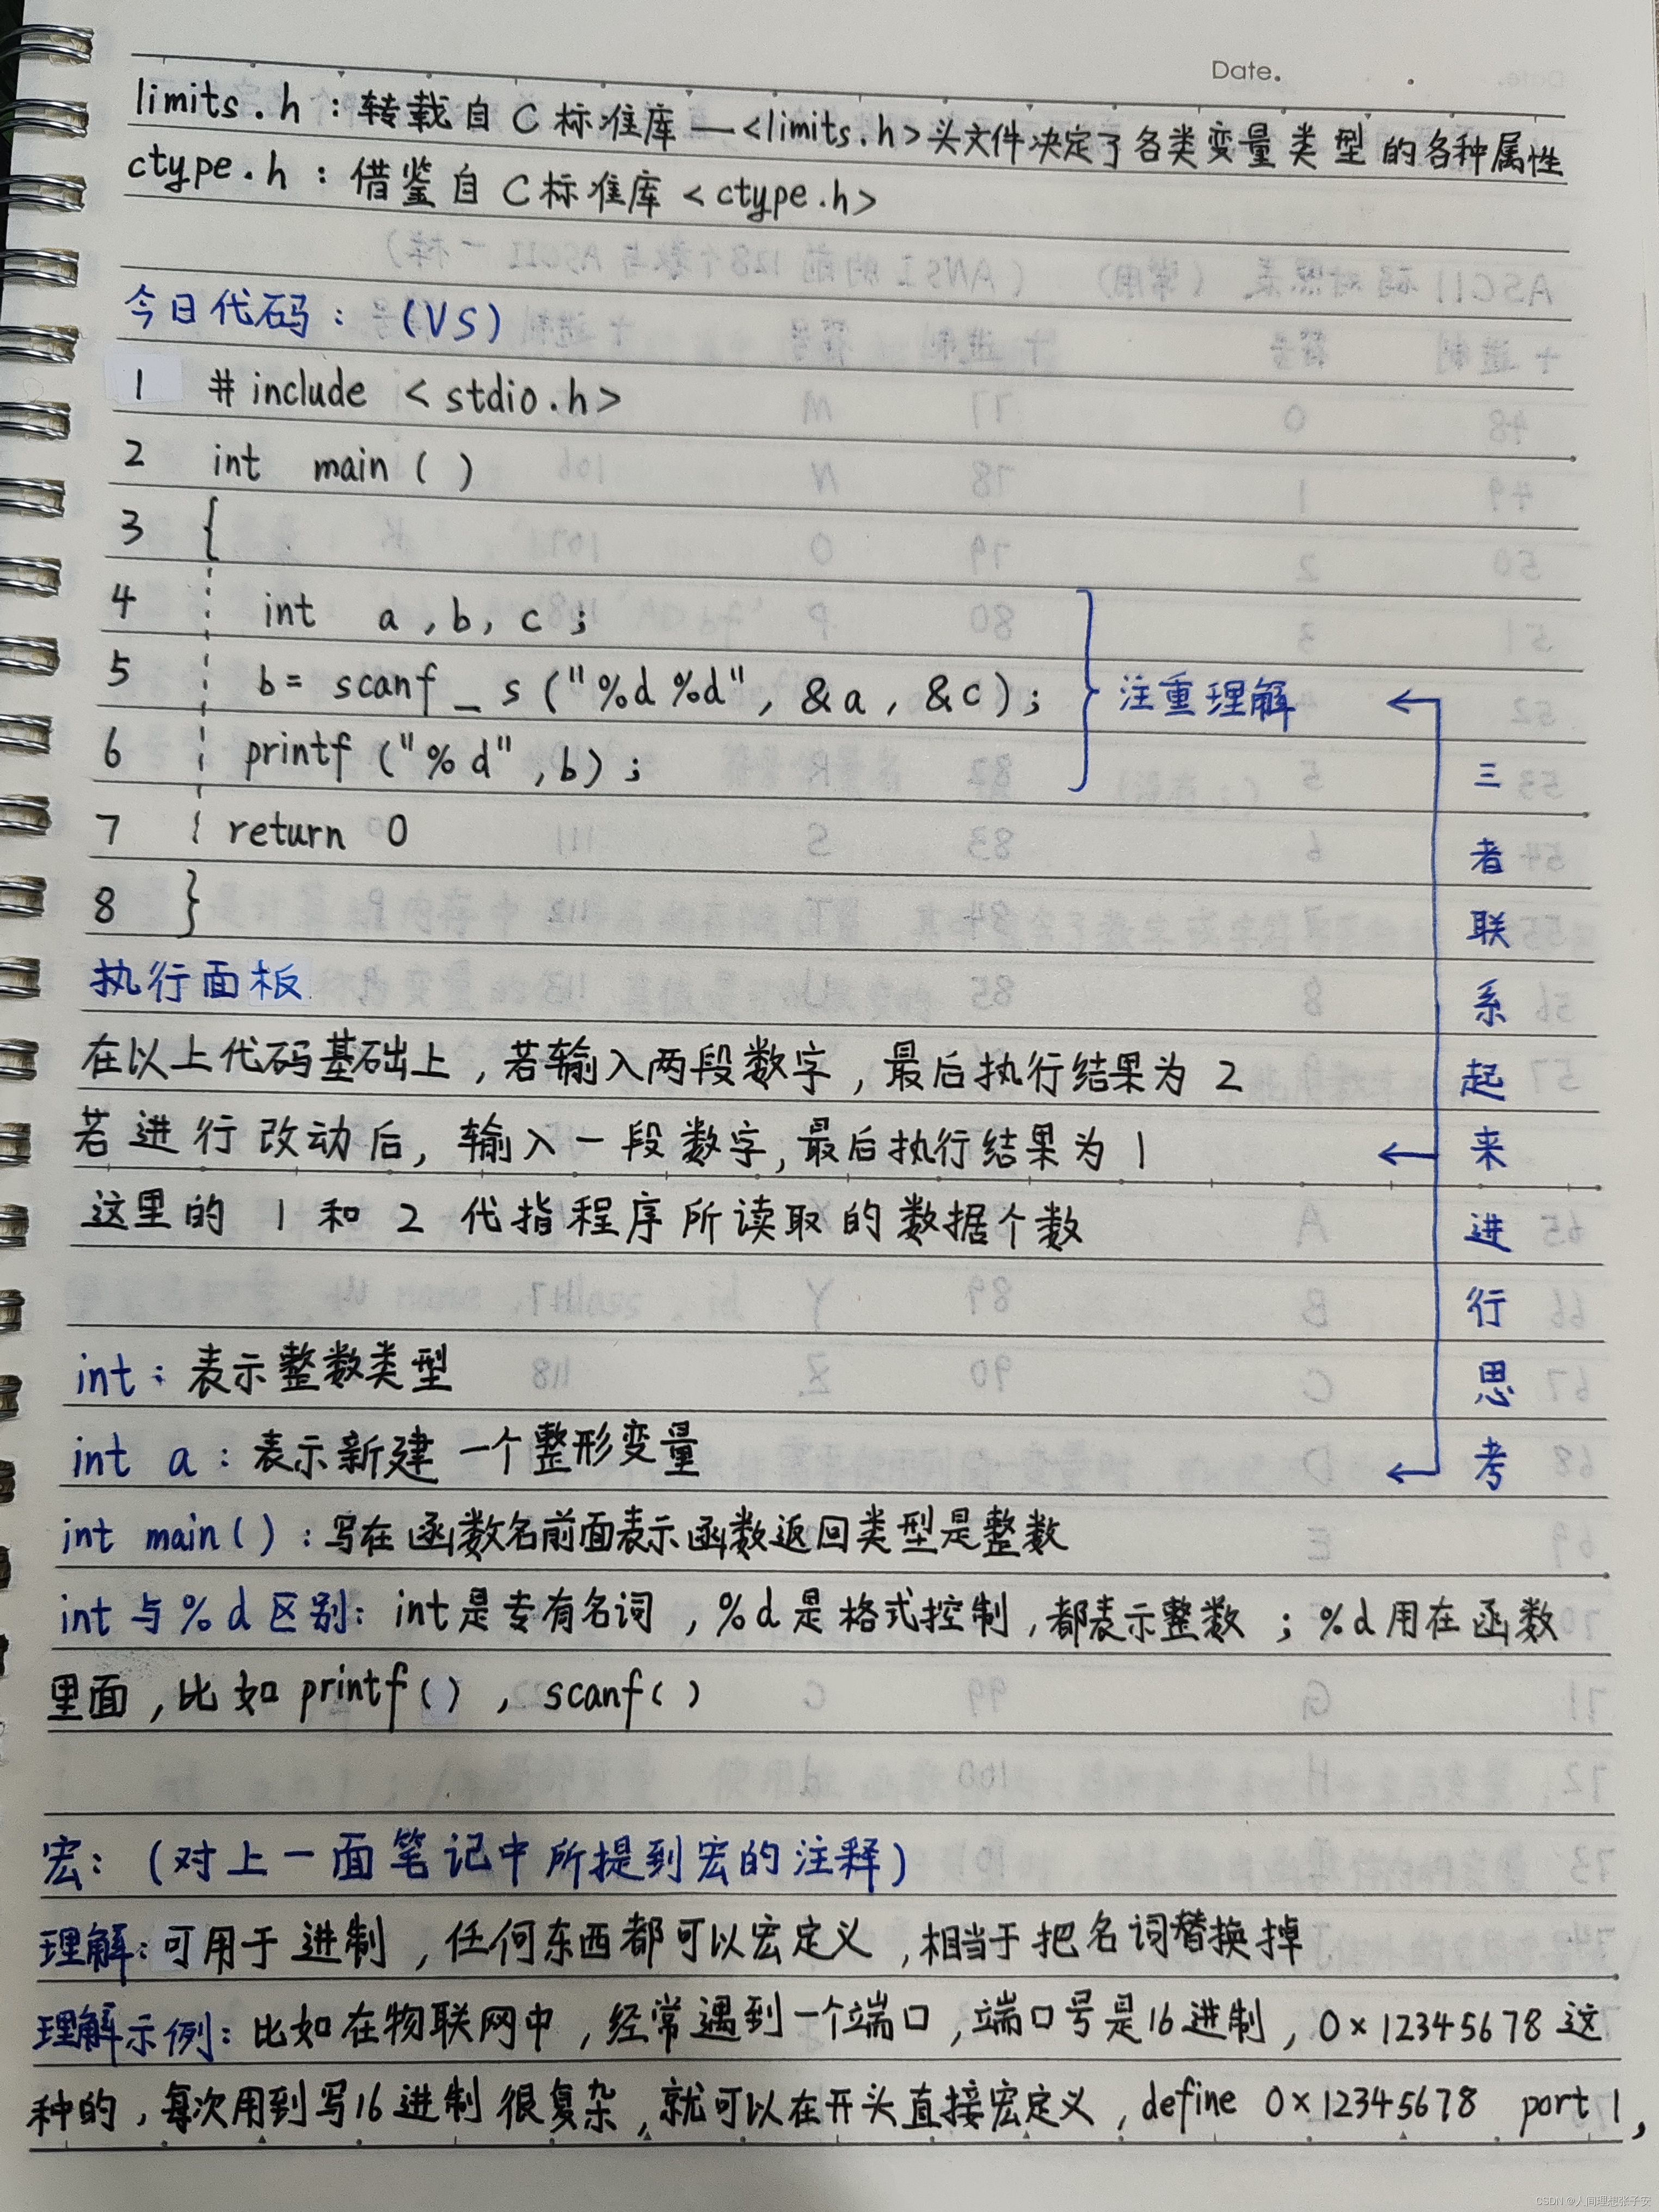 Date.
limits.h：转载自C标准库—<limits.h>头文件决定了各类变量类型的各种属性
ctype.h：借鉴自C标准库<ctype.h>
今日代码：(VS)
1 #include <stdio.h>
2 int main()
3 {
4 int a,b,c;
5 b= scanf_s("%d %d", &a, &c);
6 printf("%d",b);
注重理解
7 return 0
8 }
三者联系起来进行思考
执行面板
在以上代码基础上，若输入两段数字，最后执行结果为2
若进行改动后，输入一段数字，最后执行结果为1
这里的1和2代指程序所读取的数据个数
int：表示整数类型
int a：表示新建一个整形变量
int main()：写在函数名前面表示函数返回类型是整数
int与%d区别：int是专有名词，%d是格式控制，都表示整数；%d用在函数
里面，比如printf()，scanf()
宏：(对上一面笔记中所提到宏的注释)
理解：可用于进制，任何东西都可以宏定义，相当于把名词替换掉
理解示例：比如在物联网中，经常遇到一个端口，端口号是16进制，0×12345678这
种的，每次用到写16进制很复杂，就可以在开头直接宏定义，define 0×12345678 port1，
CSDN @人间理想张子安